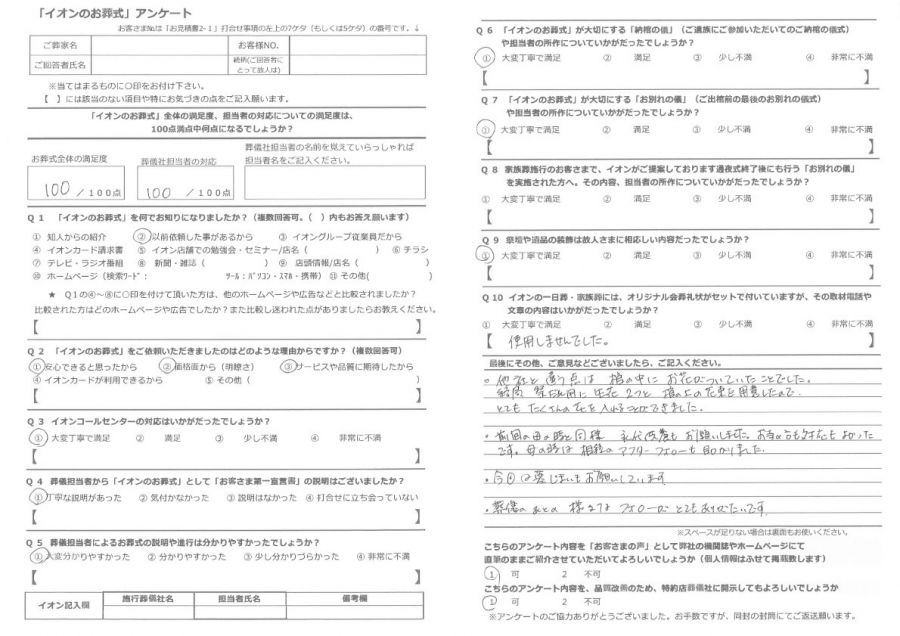 「イオンのお葬式」アンケート
お客さま№は「お見積書2-1」打合せ事項の左上の7ケタ（もしくは5ケタ）の番号です。↓
ご葬家名
お客様NO.
ご回答者氏名
続柄(ご回答者にとって故人は)
※当てはまるものに○印をお付け下さい。
【　】には該当のない項目や特にお気づきの点をご記入願います。
「イオンのお葬式」全体の満足度、担当者の対応についての満足度は、
100点満点中何点になるでしょうか？
お葬式全体の満足度
葬儀社担当者の対応
葬儀社担当者の名前を覚えていらっしゃれば
担当者名をご記入ください。
100 / 100点
100 / 100点
Q 1 「イオンのお葬式」を何でお知りになりましたか？（複数回答可。（　）内もお答え願います）
① 知人からの紹介 ② 以前依頼した事があるから ③ イオングループ従業員だから
④ イオンカード請求書 ⑤ イオン店舗での勉強会・セミナー/店名（　） ⑥ チラシ
⑦ テレビ・ラジオ番組 ⑧ 新聞・雑誌（　） ⑨ 店頭情報/店名（　）
⑩ ホームページ（検索ワード： ツール：パソコン・スマホ・携帯） ⑪ その他（　）
★ Q1の④～⑧に○印を付けて頂いた方は、他のホームページや広告などと比較されましたか？
比較された方はどのホームページや広告でしたか？また比較し迷われた点がありましたらお教えください。
【　】
Q 2 「イオンのお葬式」をご依頼いただきましたのはどのような理由からですか？（複数回答可）
① 安心できると思ったから ② 価格面から（明瞭さ） ③ サービスや品質に期待したから
④ イオンカードが利用できるから ⑤ その他（　）
【　】
Q 3 イオンコールセンターの対応はいかがだったでしょうか？
① 大変丁寧で満足 ② 満足 ③ 少し不満 ④ 非常に不満
【　】
Q 4 葬儀担当者から「イオンのお葬式」として「お客さま第一宣言書」の説明はございましたか？
① 丁寧な説明があった ② 気付かなかった ③ 説明はなかった ④ 打合せに立ち会っていない
【　】
Q 5 葬儀担当者によるお葬式の説明や進行は分かりやすかったでしょうか？
① 大変分かりやすかった ② 分かりやすかった ③ 少し分かりづらかった ④ 非常に不満
【　】
イオン記入欄
施行葬儀社名
担当者氏名
備考欄
Q 6 「イオンのお葬式」が大切にする「納棺の儀」（ご遺族にご参加いただいてのご納棺の儀式）
や担当者の所作についていかがだったでしょうか？
① 大変丁寧で満足 ② 満足 ③ 少し不満 ④ 非常に不満
【　】
Q 7 「イオンのお葬式」が大切にする「お別れの儀」（ご出棺前の最後のお別れの儀式）
や担当者の所作についていかがだったでしょうか？
① 大変丁寧で満足 ② 満足 ③ 少し不満 ④ 非常に不満
【　】
Q 8 家族葬施行のお客さまで、イオンがご提案しております通夜式終了後にも行う「お別れの儀」
を実施された方へ。その内容、担当者の所作についていかがだったでしょうか？
① 大変丁寧で満足 ② 満足 ③ 少し不満 ④ 非常に不満
【　】
Q 9 祭壇や遺品の装飾は故人さまに相応しい内容だったでしょうか？
① 大変丁寧で満足 ② 満足 ③ 少し不満 ④ 非常に不満
【　】
Q 10 イオンの一日葬・家族葬には、オリジナル会葬礼状がセットで付いていますが、その取材電話や
文章の内容はいかがだったでしょうか？
① 大変丁寧で満足 ② 満足 ③ 少し不満 ④ 非常に不満
【 使用しませんでした。 】
最後にその他、ご意見などございましたら、ご記入ください。
・他社と違う点は 棺の中に お花がついていたことでした。
結局 祭だん用に 生花 2つと 棺の上の花束を用意したので
とても たくさんの花を 入れることができました。
・前回の母の時と同様 永代供養も お願いしました。
です。母の時は 相続の アフターフォローも 助かりました。
・今回は墓じまいもお願いしています
・葬儀のあとの 様々な フォローが とてもありがたいです。
※スペースが足りない場合は裏面もお使いください。
こちらのアンケート内容を「お客さまの声」として弊社の機関誌やホームページにて
直筆のままご紹介させていただいてよろしいでしょうか（個人情報はふせて掲載致します）
1 可 2 不可
こちらのアンケート内容を、品質改善のため、特約店葬儀社に開示してもよろしいでしょうか
1 可 2 不可
※アンケートのご協力ありがとうございました。お手数ですが、同封の封筒にてご返送願います。